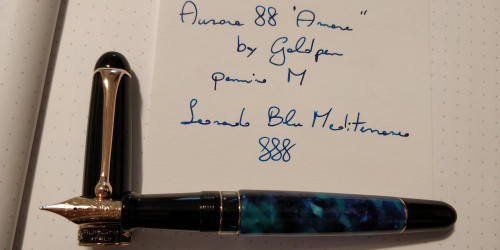 Aurora 88 "Amore"
by Goldpen
pennino M
Leonardo Blu Mediterraneo
888